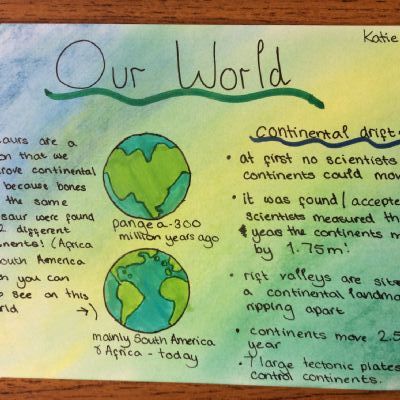 Katie
Our World
aurs are a
on that we
rove continental
because bones
the same
saur were found
2 different
nents! (Africa
outh America
h you can
o see on this
rld →)
pangea-300
million years ago
mainly South America
& Africa - today
continental drift
• at first no scientists
continents could mov
• it was found/accepte
scientists measured th
years the continents m
by 1.75m!
• rift valleys are sit
a continental landma
ripping apart
• continents move 2.5
year
• 7 large tectonic plates
control continents.